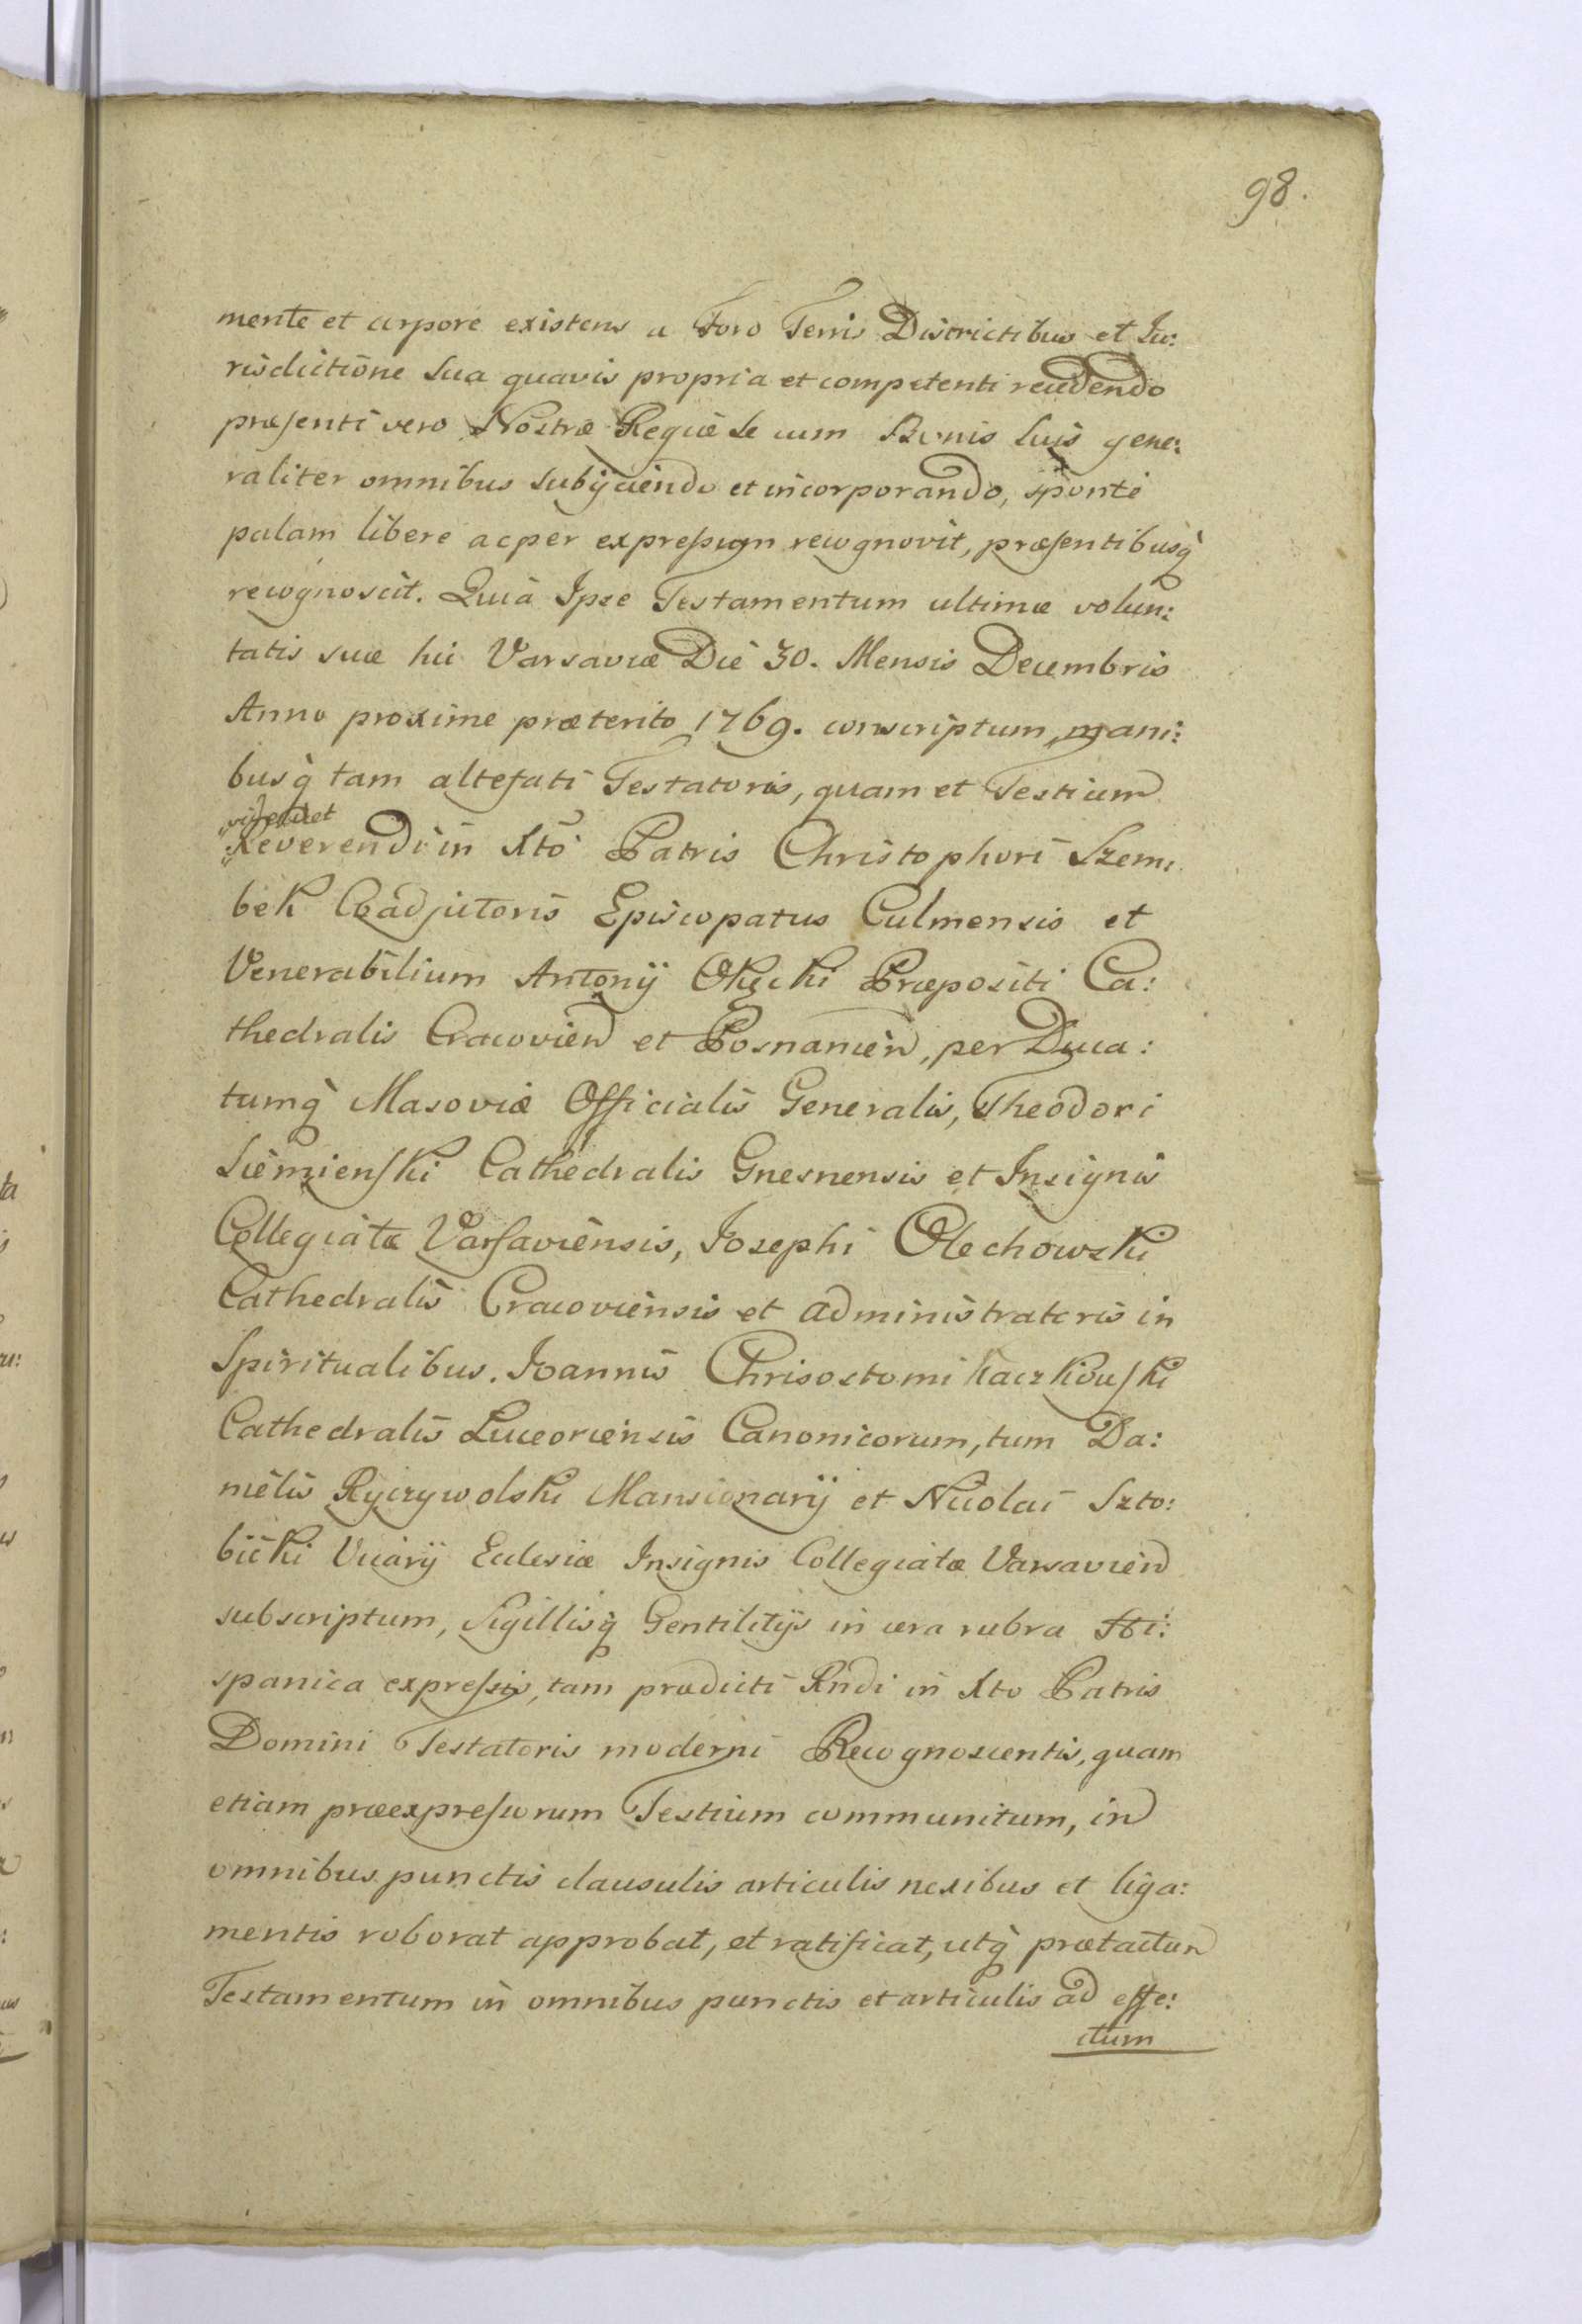 98.
mente et corpore existens a Foro Terris Districtibus et Ju:
risdictione Sua quavis propria et competenti recedendo
præsenti vero Nostræ Regiæ Se cum Bonis Suis gene:
raliter omnibus Subijciendo et incorporando, sponte
palam libere ac per expressum recognovit, præsentibusq̀
recognoscit. Quia Ipse Testamentum ultimæ volun:
tatis suæ hic Varsaviæ Die 30. Mensis Decembris
Anno proxime præterito 1769. conscriptum, mani:
busq̀ tam altefati Testatoris, quam et Testium
Reverendi in Xto Patris Christophori Szem:
bek Coadjutoris Episcopatus Culmensis et
Venerabilium Antonij Okęcki Præpositi Ca:
thedralis Cracovien et Posnanien, per Duca:
tumq̀ Masoviæ Officialis Generalis, Theodori
Siemienski Cathedralis Gnesnensis et Insignis
Collegiatæ Varsaviensis, Josephi Olechowski
Cathedralis Cracoviensis et administratoris in
Spiritualibus. Joannis Chrisostomi Kaczkowski
Cathedralis Luceoriensis Canonicorum, tum Da:
nielis Ryczywolski Mansionarij et Nicolai Szto:
bicki Vicarij Ecclesiæ Insignis Collegiatæ Varsavien
subscriptum, Sigillisq̀ Gentilitijs in cera rubra Hi:
spanica expressis, tam prædicti Rndi in Xto Patris
Domini Testatoris moderni Recognoscentis, quam
etiam præexpressorum Testium communitum, in
omnibus punctis clausulis articulis nexibus et liga:
mentis roborat approbat, et ratificat, utq̀ prætactum
Testamentum in omnibus punctis et articulis ad effe:
ctum